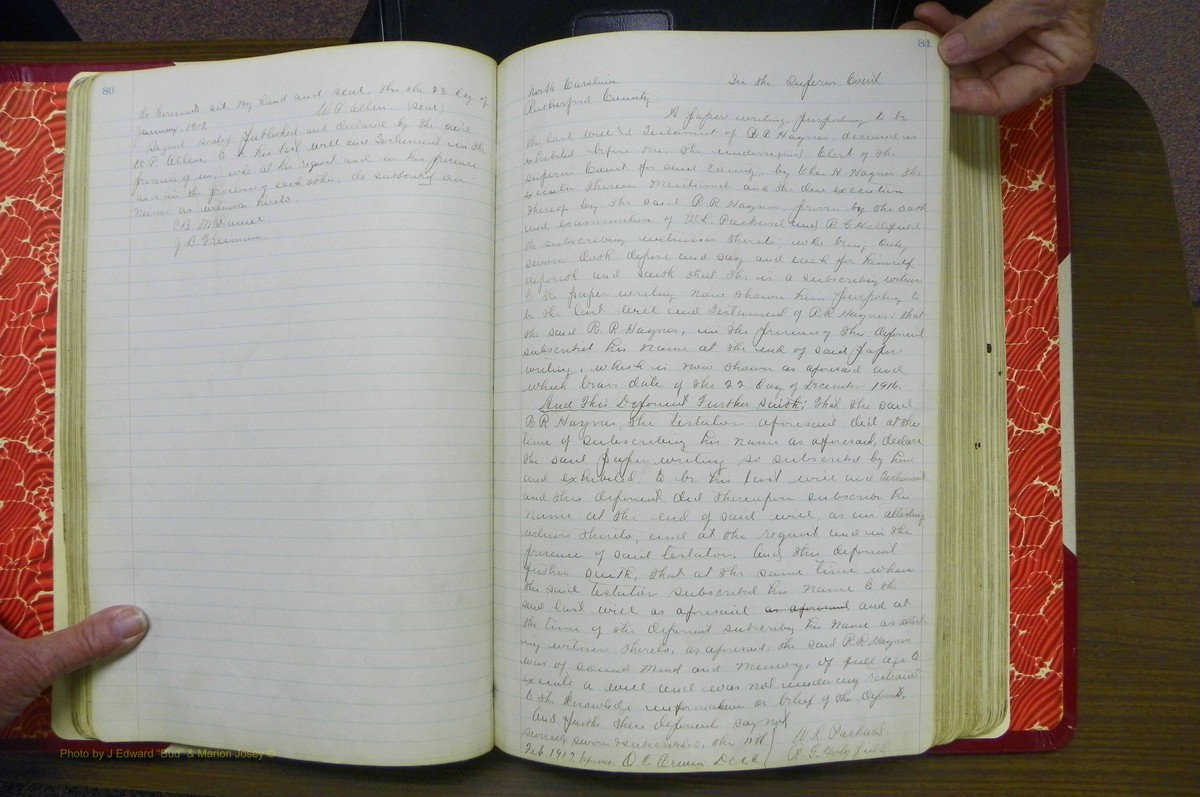 80
In Herunto set my hand and seal, this the 23 day of
January 1917.
W. P. Allen (Seal)
Signed sealed published and declared by the said
W P Allen to be his last will and Testament in the
presence of us, who at his request and in his presence
and in the presence of each other, do subscribe our
name as witness hereto.
C B. McDaniel
J. B. Freeman
81
North Carolina In the Superior Court
Rutherford County
A paper writing purporting to be
the last will and Testament of R R Haynes deceased is
exhibited before me, the undersigned Clerk of the
Superior Court for said County, by Chas H Haynes the
executor therein mentioned and the due execution
thereof by the said R R Haynes, proven by the oath
and examination of W. L. Packard and R G
the subscribing witnesses thereto; who being duly
sworn doth depose and say and each for himself
deposeth and saith that he is a subscribing witness
to the paper writing now shown him purporting to
be the last will and Testament of R R Haynes: that
the said R. R Haynes, in the presence of this deponent
subscribed his name at the end of said paper
writing, which is now shown as aforesaid and
which bears date of the 22 day of December 1916.
And This Deponent Further Saith; that the said
R R Haynes the testator aforesaid did at the
time of subscribing his name as aforesaid, declare
the said paper writing so subscribed by him
and exhibited to be his last will and Testament
and this deponent did thereupon subscribe his
name at the end of said will as an attesting
witness thereto, and at the request and in the
presence of said testator. And this deponent
further saith, that at the same time when
the said testator subscribed his name to the
said last will as aforesaid as aforesaid and at
the time of the deponent subscribing his name as attest
ing witness thereto, as aforesaid, the said R R Haynes
was of sound mind and memory, of full age to
execute a will and was not under any restraint
to the knowledge information or belief of the deponent.
And further these deponents say not
severally sworn & subscribed, this the
Feb 1917, before O. C. Erwin D C S C
W. L. Packard
R. G.
Photo by J Edward "Bud" & Marion Josey ©